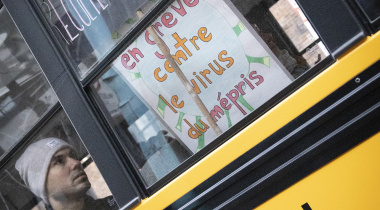 en Grève
contre
le virus
du mépris